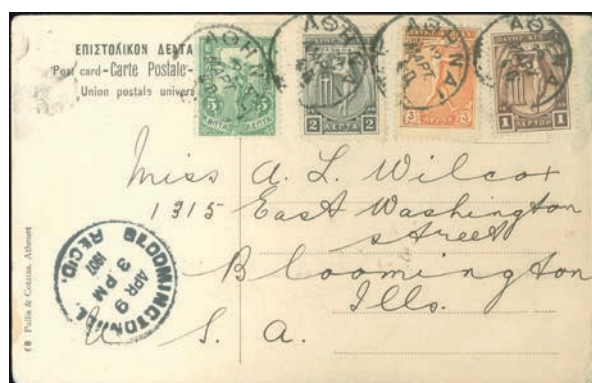 ΕΠΙΣΤΟΛΙΚΟΝ ΔΕΛΤΑ
Post card - Carte Postale -
Union postale univers
ΑΘΗΝΑΙ
ΜΑΡΤ
5 ΛΕΠΤΑ 5
2 ΛΕΠΤΑ 2
3 ΛΕΠΤΑ 3
1 ΛΕΠΤΟΝ 1
Miss A. L. Wilcox
1315 East Washington
Street
Bloomington
Ills.
U S. A.
BLOOMINGTON, ILL.
APR 9
3 PM
1907
REC'D.
68 Pallis & Cotzias, Athenes